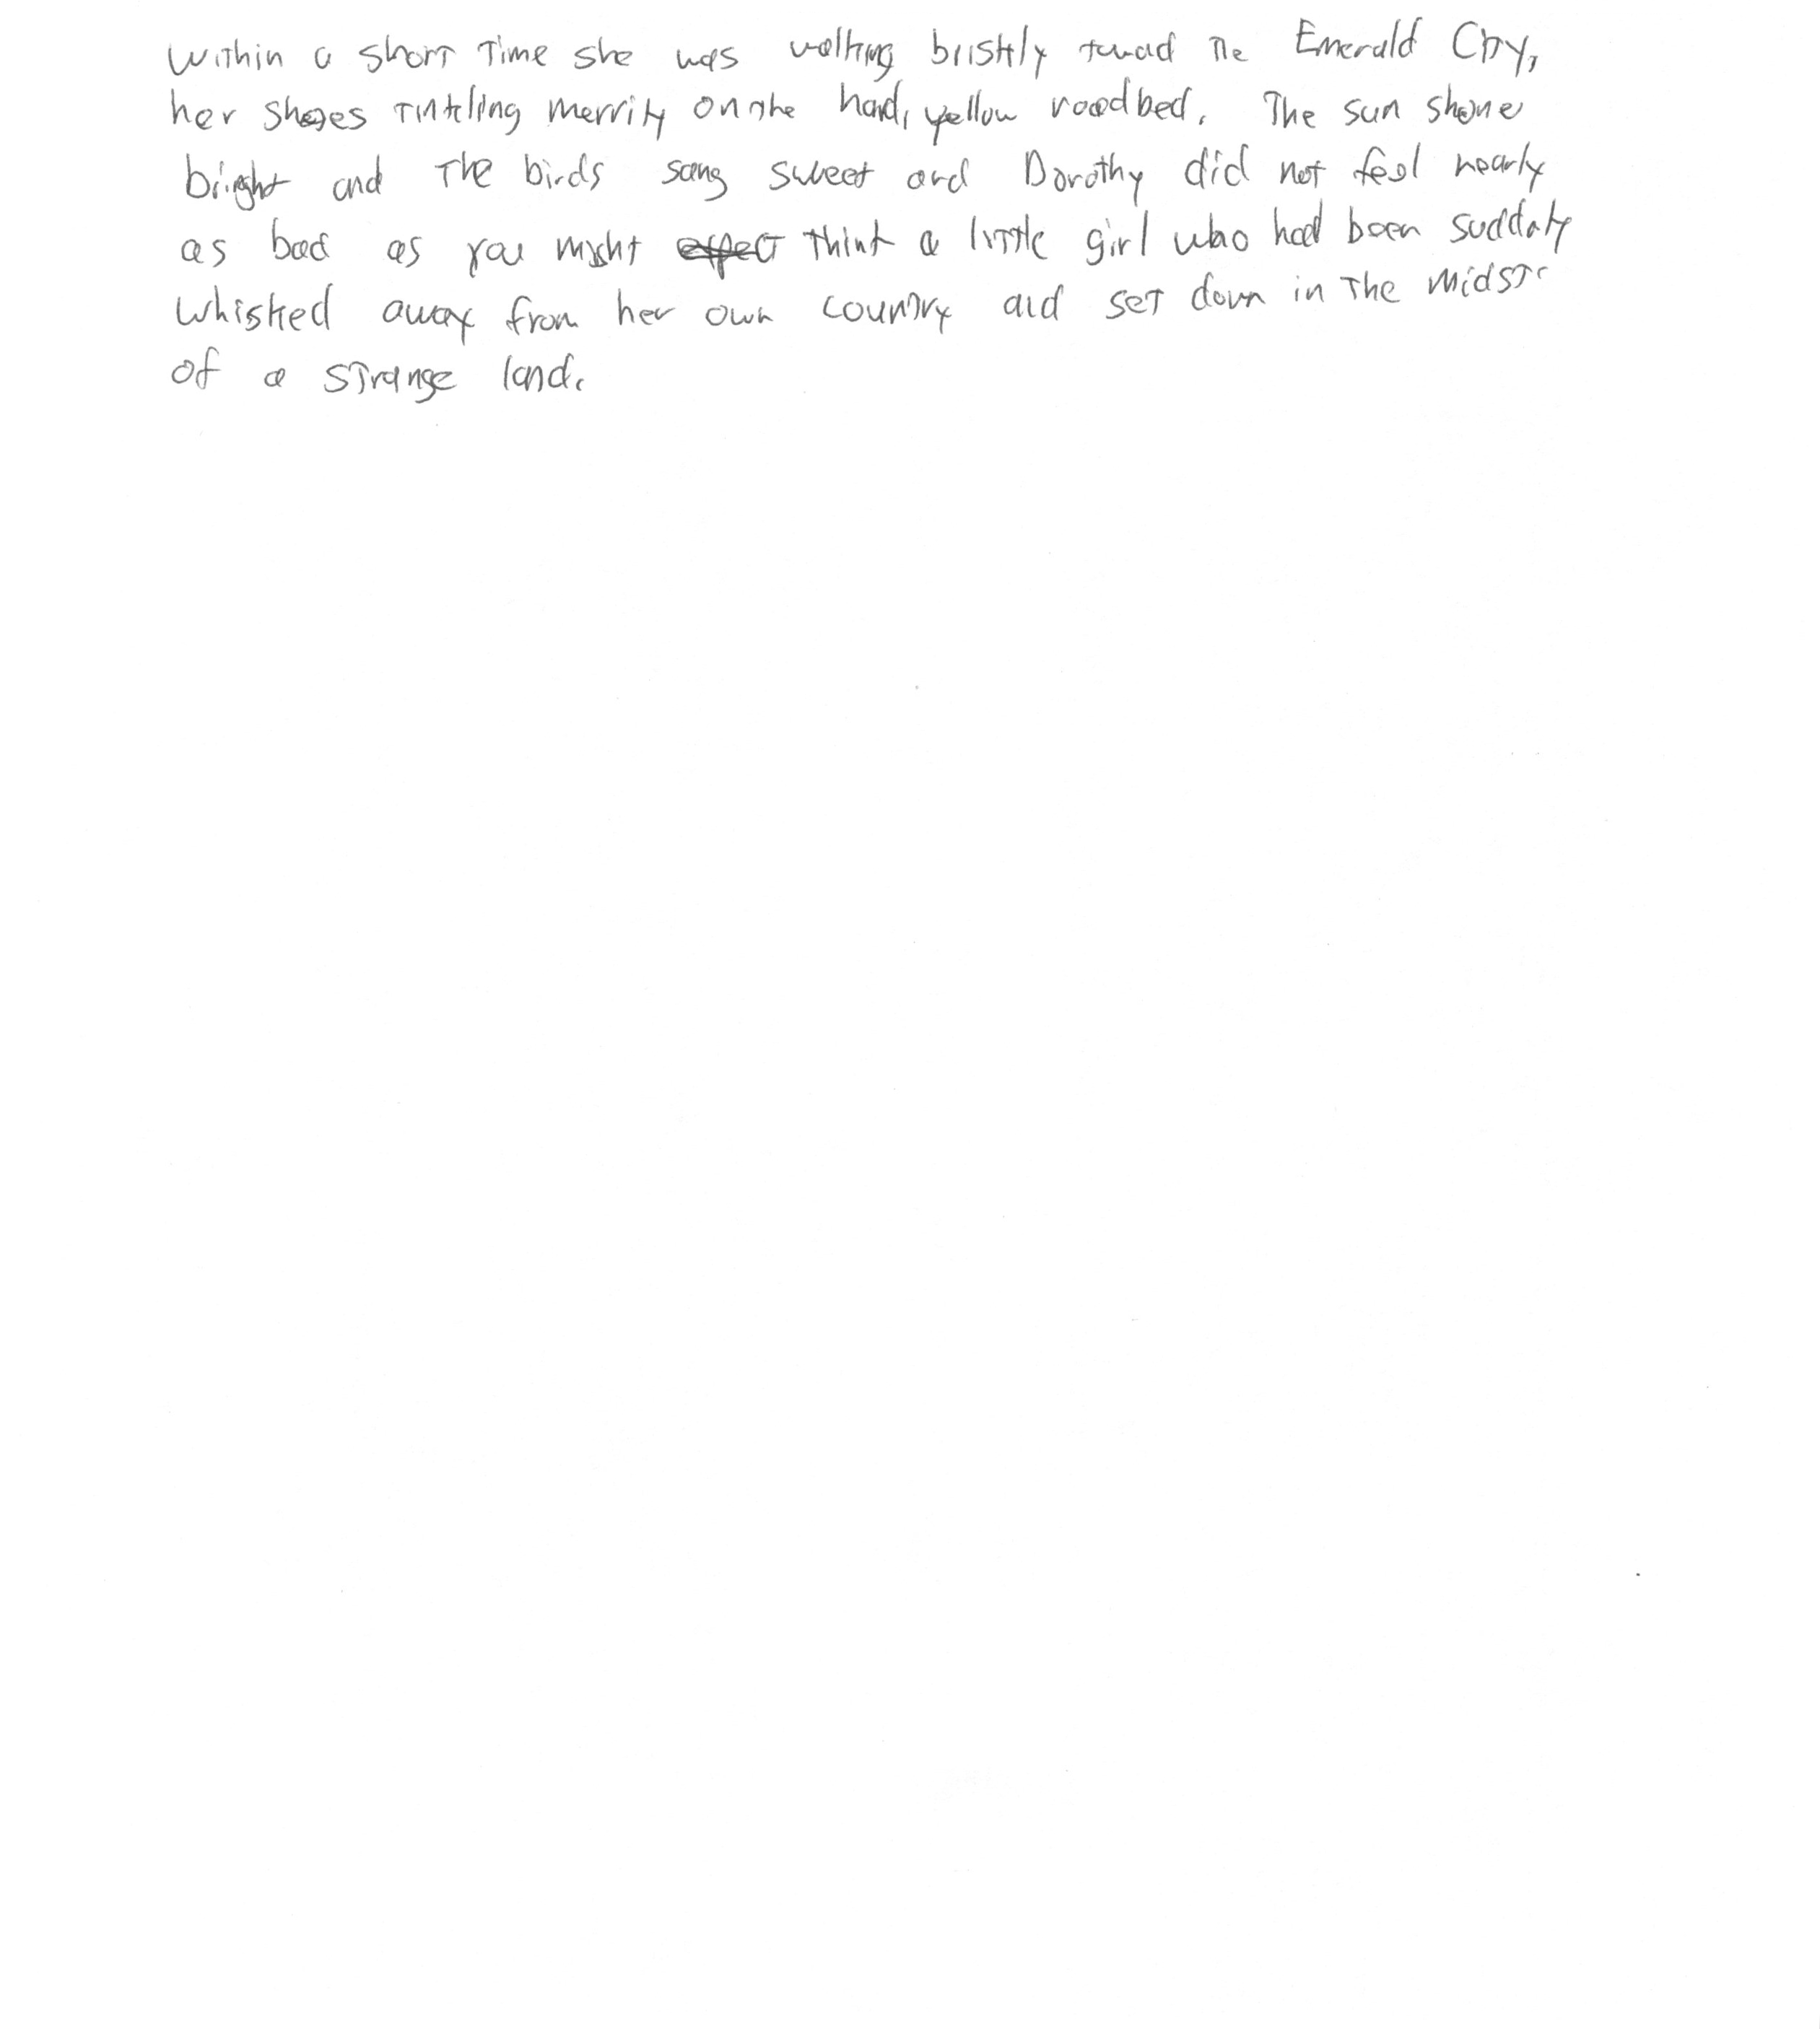 Within a short time she was walking briskly toward the Emerald City,
her shoes tinkling merrily on the hard, yellow roadbed. The sun shone
bright and the birds sang sweet and Dorothy did not feel nearly
as bad as you might think a little girl who had been suddenly
whisked away from her own country and set down in the midst
of a strange land.